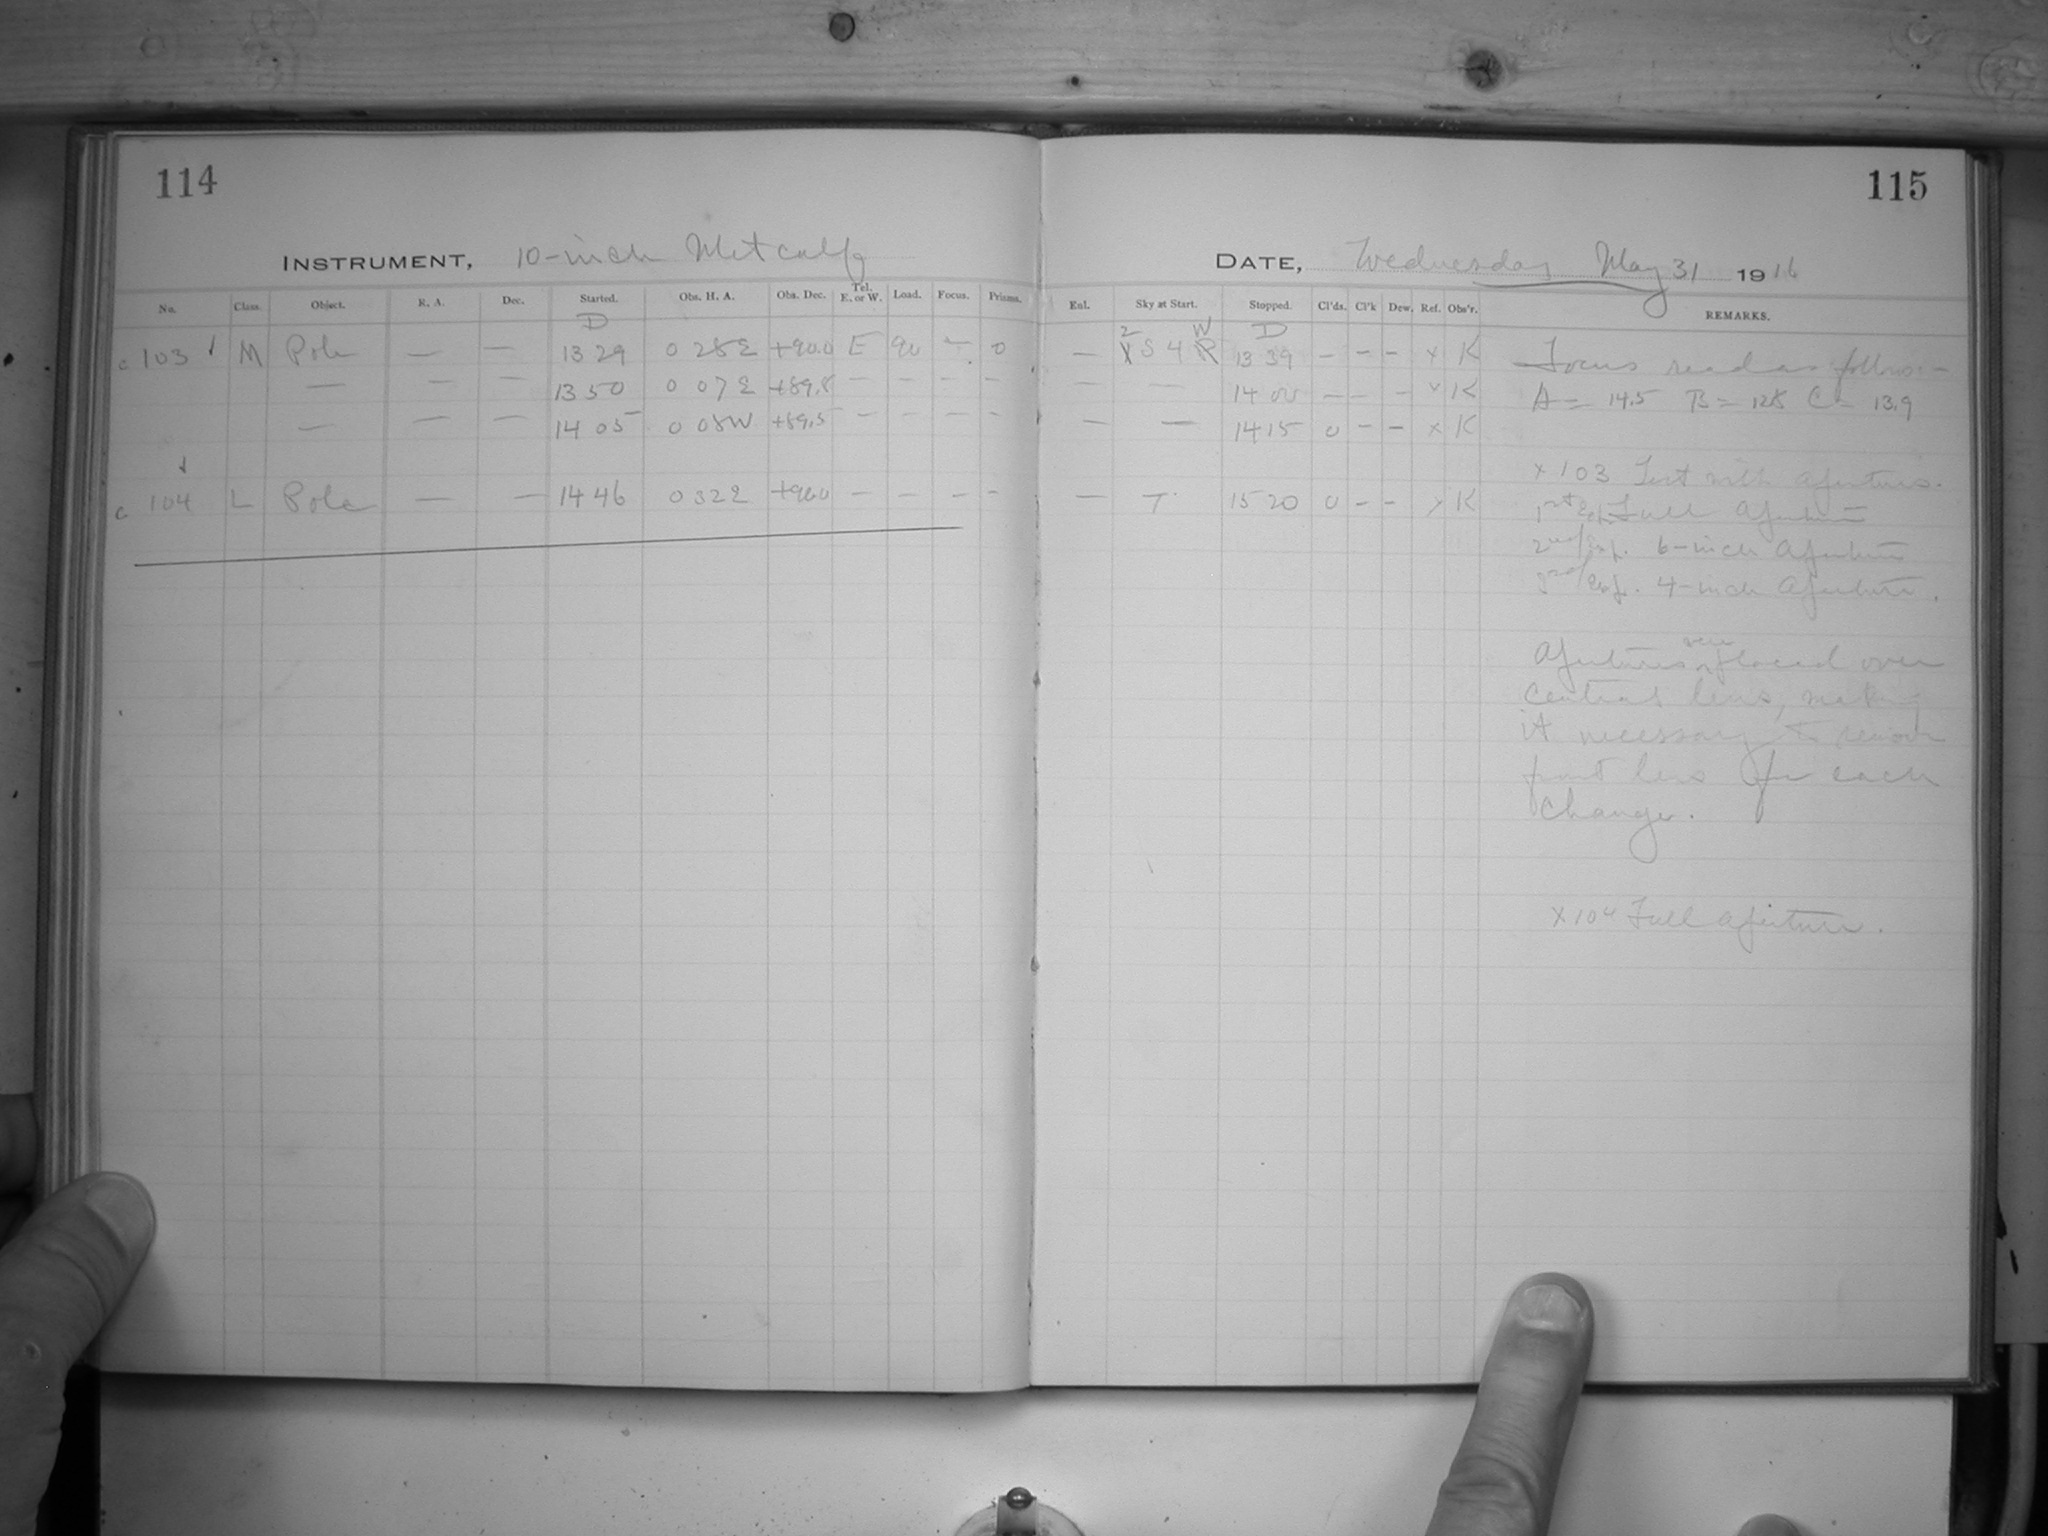 114
115
INSTRUMENT, 10-inch Metcalf
DATE, Wednesday May 31 1916
No. Class. Object. R. A. Dec. Started. Obs. H. A. Obs. Dec. Tel. E. or W. Load. Focus. Prisms. Enl. Sky at Start. Stopped. Cl'ds. Cl'k Dew. Ref. Obs'r. REMARKS.
D 2 W D
c 103 M Pole — — 13 29 0 28 E +90.0 E 90 — 0 — S 4 13 39 — — — x K Focus read as follows:—
— — — 13 50 0 07 E +89.8 — — — — — — 14 00 — — — x K A = 14.5 B = 12.8 C = 13.9
— — — 14 05 0 08 W +89.5 — — — — — — 14 15 0 — — x K
x 103 Test with apertures.
c 104 L Pole — — 14 46 0 32 E +90.0 — — — — — 15 20 0 — — x K 1st Exp. Full Aperture
2nd Exp. 6-inch Aperture
3rd Exp. 4-inch Aperture.
Apertures were placed over
central lens, making
it necessary to remove
front lens for each
change.
x 104 Full aperture.